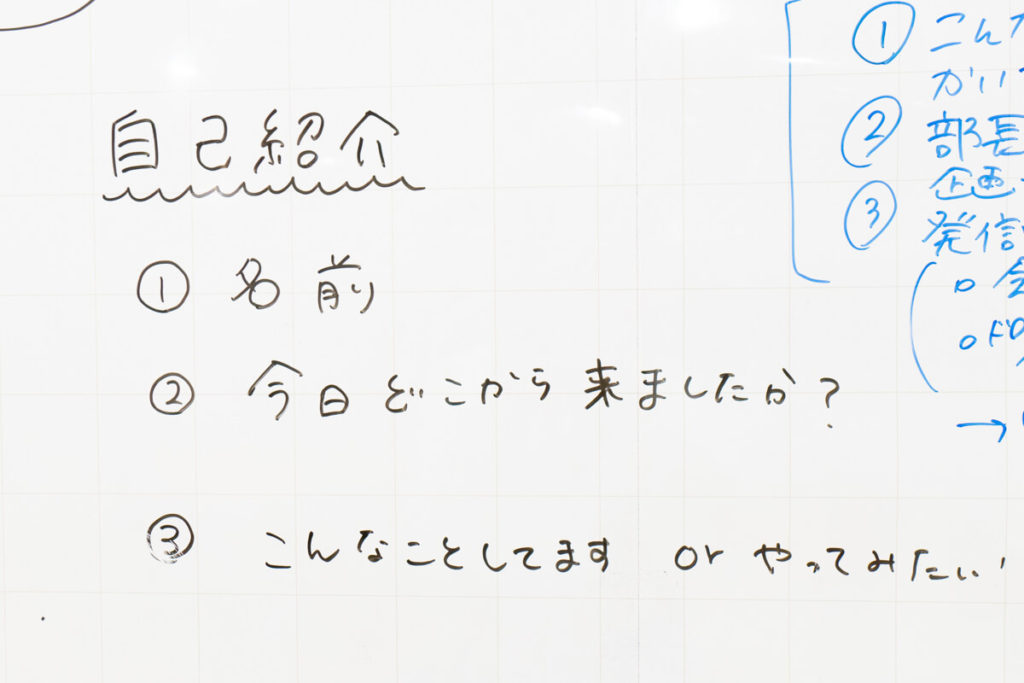 自己紹介
① 名前
② 今日どこから来ましたか?
③ こんなことしてます or やってみたい
① こん
かい
② 部長
企画
③ 発信
→